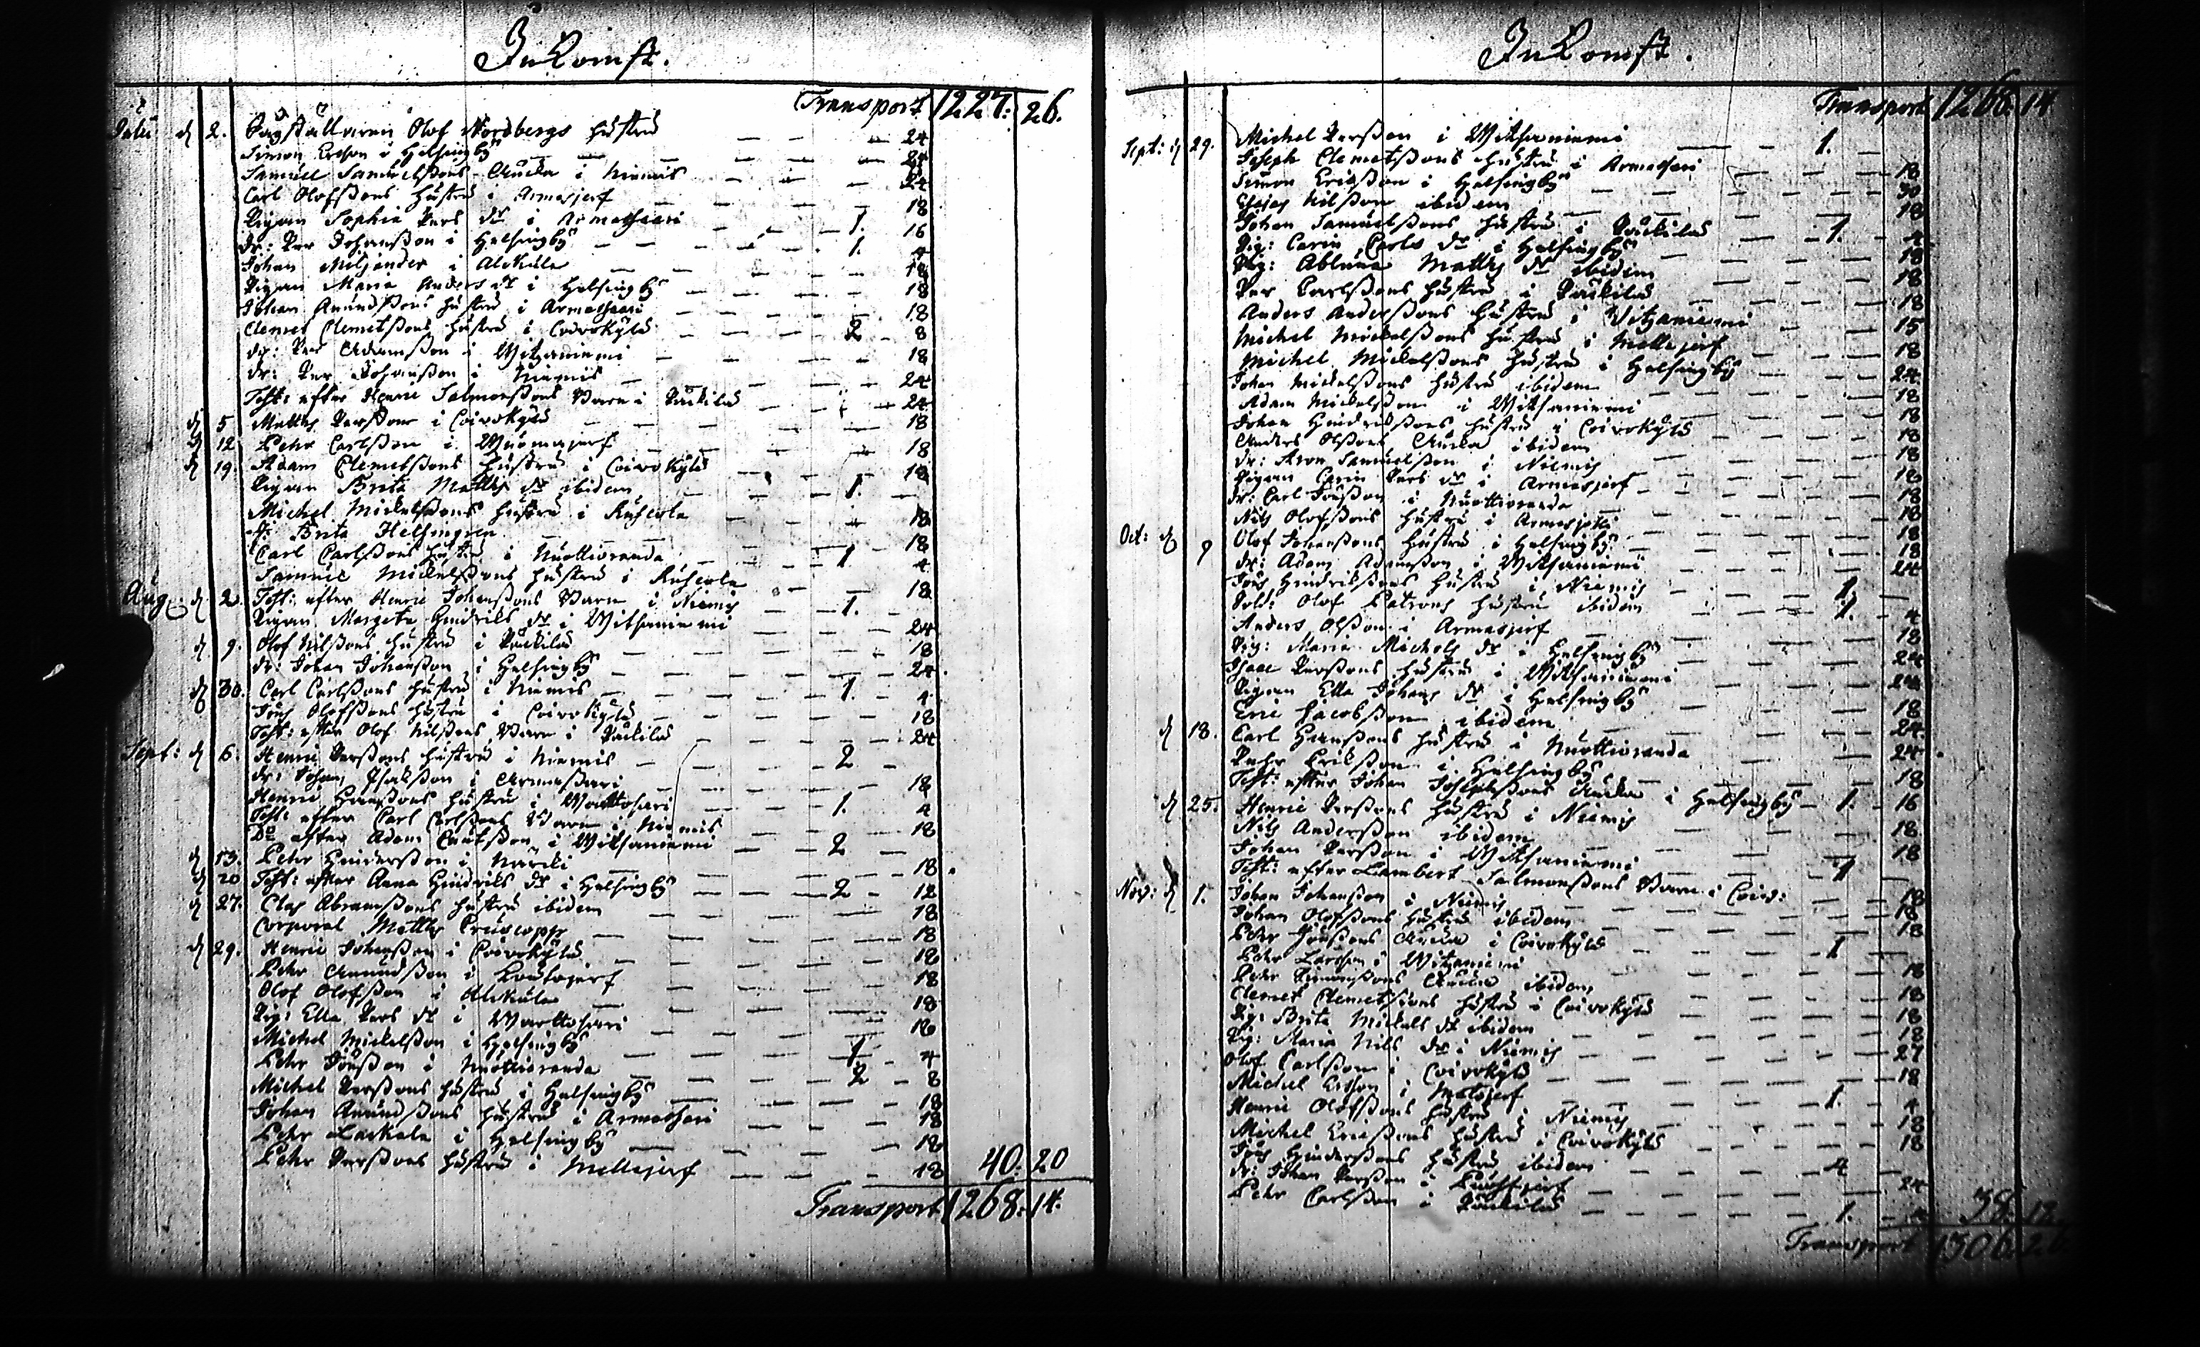 Inkomst.
Transport 1227. 26.
Julii d 2. Olof Nordbergs hustru 24
Simon Ersson i Helsingby — — — 24
Samuel Samuelssons Äncka i Niemis — — — 24
Carl Olofssons hustru i Armasjerf — — — 18
Pigan Sophia Pers dr i Armassaari — 1. 16
dr: Per Johansson i Helsingby — — 1. 4
Johan Miljander i Alckula — — — 18
Pigan Maria Anders dr i Helsingby — — — 18
Johan Amundssons hustru i Armassaari — — — 18
Clemet Clemetssons hustru i Coivokylä — 2 8
dr: Per Adamsson i Witzaniemi — — — 18
dr: Per Johansson i Niemis — — — 24
Test: efter Henric Salmonssons Barn i Päckilä — — 24
d 5 Matths Persson i Coivokylä — — — 18
d 12 Pehr Carlsson i Wuomajerf — — — 18
d 19. Adam Clemetssons hustru i Coivokylä — — — 18
Pigan Brita Matths dr ibidem — — 1. —
Michel Mickelssons hustru i Ruskola — — — 18
Brita Helsingren — — — 18
Carl Carlssons hustru i Nuottioranda — 1 4
Samuel Mickelssons hustru i Ruskola — — — 18
Aug d 2. Test: efter Henric Johanssons Barn i Niemis — 1. —
Pigan Margeta Hindriks dr i Witsaniemi — — 24
d 9. Olof Nilssons hustru i Päckilä — — — 18
dr: Johan Johansson i Helsingby — — — 24
d 30. Carl Carlssons hustru i Niemis — 1. 4
Jöns Olofssons hustru i Coivokylä — — — 18
Test: efter Olof Nilssons Barn i Päckilä — — 24
Sept: d 6. Henric Perssons hustru i Niemis — 2 —
dr: Johan Isaksson i Armassari — — — 18
Henric Hanssons hustru i Wouttosari — 1. 4
Test: efter Carl Carlssons Barn i Niemis — — 18
Do efter Adam Knutsson i Witsaniemi — 2 —
d 13. Pehr Hindersson i Närcki — — — 18
d 20 Test: efter Anna Hindriks dr i Helsingby — 2 12
d 27. Clas Abramssons hustru ibidem — — — 18
Corporal Matths — — — 18
d 29. Henric Johansson i Coivokylä — — — 18
Pehr Amundsson i — — — 18
Olof Olofsson i Alckula — — — 18
Pig: Ella Pers dr i Wouttosari — — — 18
Michel Mickelsson i Helsingby — 1 4
Pehr Jönsson i Nuottioranda — 2 8
Michel Perssons hustru i Helsingby — — — 18
Johan Amundssons hustru i Armassari — — — 18
Pehr Lackala i Helsingby — — — 18
Pehr Perssons hustru i Mellajerf — — — 18 40. 20
Transport 1268. 14.
Inkomst.
Transport 1268. 14
Sept: d 29. Michel Persson i Witsaniemi — 1. —
Joseph Clemetssons hustru i Armassari — — 18
Simon Ericsson i Helsingby — — — 30
Nilsson ibidem — — — 18
Johan Samuelssons hustru i Päckilä — 1. 4
Pig: Carin Carls dr i Helsingby — — — 18
Pig: Matths dr ibidem — — — 18
Per Carlssons hustru i Päckilä — — — 18
Anders Anderssons hustru i Witzaniemi — — 15
Michel Mickelssons hustru i Mellajerf — — 18
Michel Mickelssons hustru i Helsingby — — 24
Johan Mickelssons hustru ibidem — — — 18
Adam Mickelsson i Witsaniemi — — — 18
Johan Hindrikssons hustru i Coivokylä — — 18
Anders Olssons Äncka ibidem — — — 18
dr: Aron Samuelsson i Niemis — — — 18
Pigan Carin Pers dr i Armasjerf — — — 18
dr: Carl Jönsson i Nuottioranda — — — 18
Nils Olofssons hustru i Armasjerf — — — 18
Oct: d 9 Olof Johanssons hustru i Helsingby — — — 18
dr: Adam Adamsson i Witsaniemi — — — 24
Jöns Hindrikssons hustru i Niemis — 1. —
Sold: Olof Patrons hustru ibidem — 1. 4
Anders Olsson i Armasjerf — — — 18
Pig: Maria Michels dr i Helsingby — — — 24
Isaac Perssons hustru i Witsaniemi — — — 24
Pigan Ella Johans dr i Helsingby — — — 18
Eric Jacobsson ibidem — — — 24
d 18. Carl Hanssons hustru i Nuottioranda — — 24.
Pehr Ericsson i Helsingby — — — 18
Test: efter Johan Josephssons Äncka i Helsingby — 1. 16
d 25. Henric Perssons hustru i Niemis — — — 18
Nils Andersson ibidem — — — 18
Johan Persson i Witsaniemi — 1 —
Test: efter Lambert Salmonssons Barn i Coiv: — 18
Nov: d 1. Johan Johansson i Niemis — — — 18
Johan Olofssons hustru ibidem — — — 18
Pehr Jönssons Änka i Coivokylä — 1 —
Pehr Larsson i Witzaniemi — — — 18
Pehr Simonssons Änka ibidem — — — 18
Clemet Clemetssons hustru i Coivokylä — — 18
Pig: Brita Mickels dr ibidem — — — 18
Pig: Maria Nils dr i Niemis — — — 27
Olof Carlsson i Coivokylä — — — 18
Michel Ersson i Matojerf — 1. 4
Henric Olofssons hustru i Niemis — — — 18
Michel Ericssons hustru i Coivokylä — — — 18
Jöns Hinderssons hustru ibidem — 4 —
dr: Johan Persson i — — — 24
Pehr Carlsson i Päckilä — 1. 4 38. 12.
Transport 1306. 26.